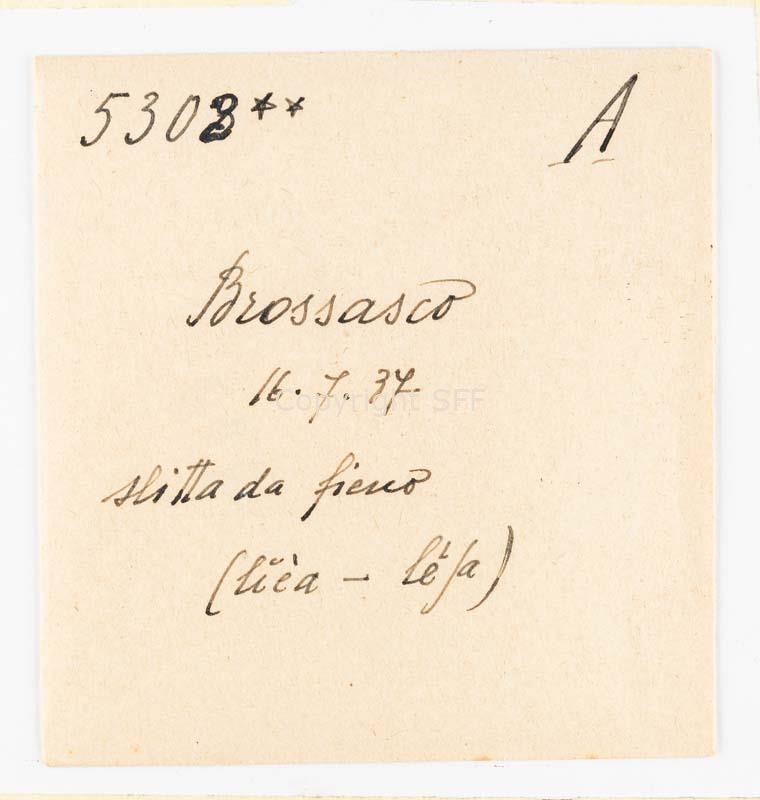 5308** A
Brossasco
16. 7. 37.
Copyright SFF
slitta da fieno
(lüèa - léʃa)